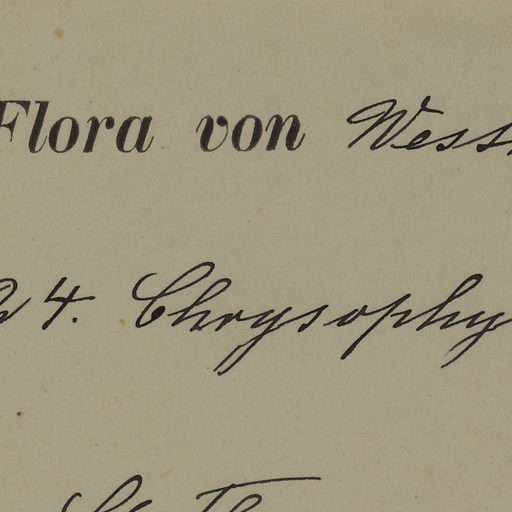 Flora von Wess
24. Chrysophy
St. Th